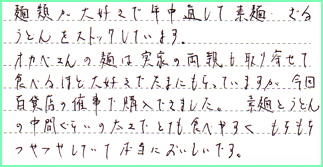 麺類が大好きで年中通して素麺、ざる
うどんをストックしています。
オカベさんの麺は実家の両親も取り寄せて
食べるほど大好きでたまにもらっていますが、今回
百貨店の催事で購入できました。 素麺とうどん
の中間ぐらいの太さでとても食べやすく もちもち
つやつやしていて本当においしいです。